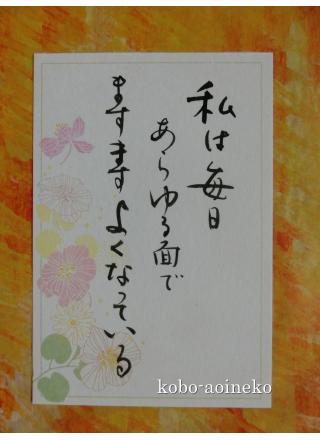 私は毎日
あらゆる面で
ますますよくなっている
kobo-aoineko